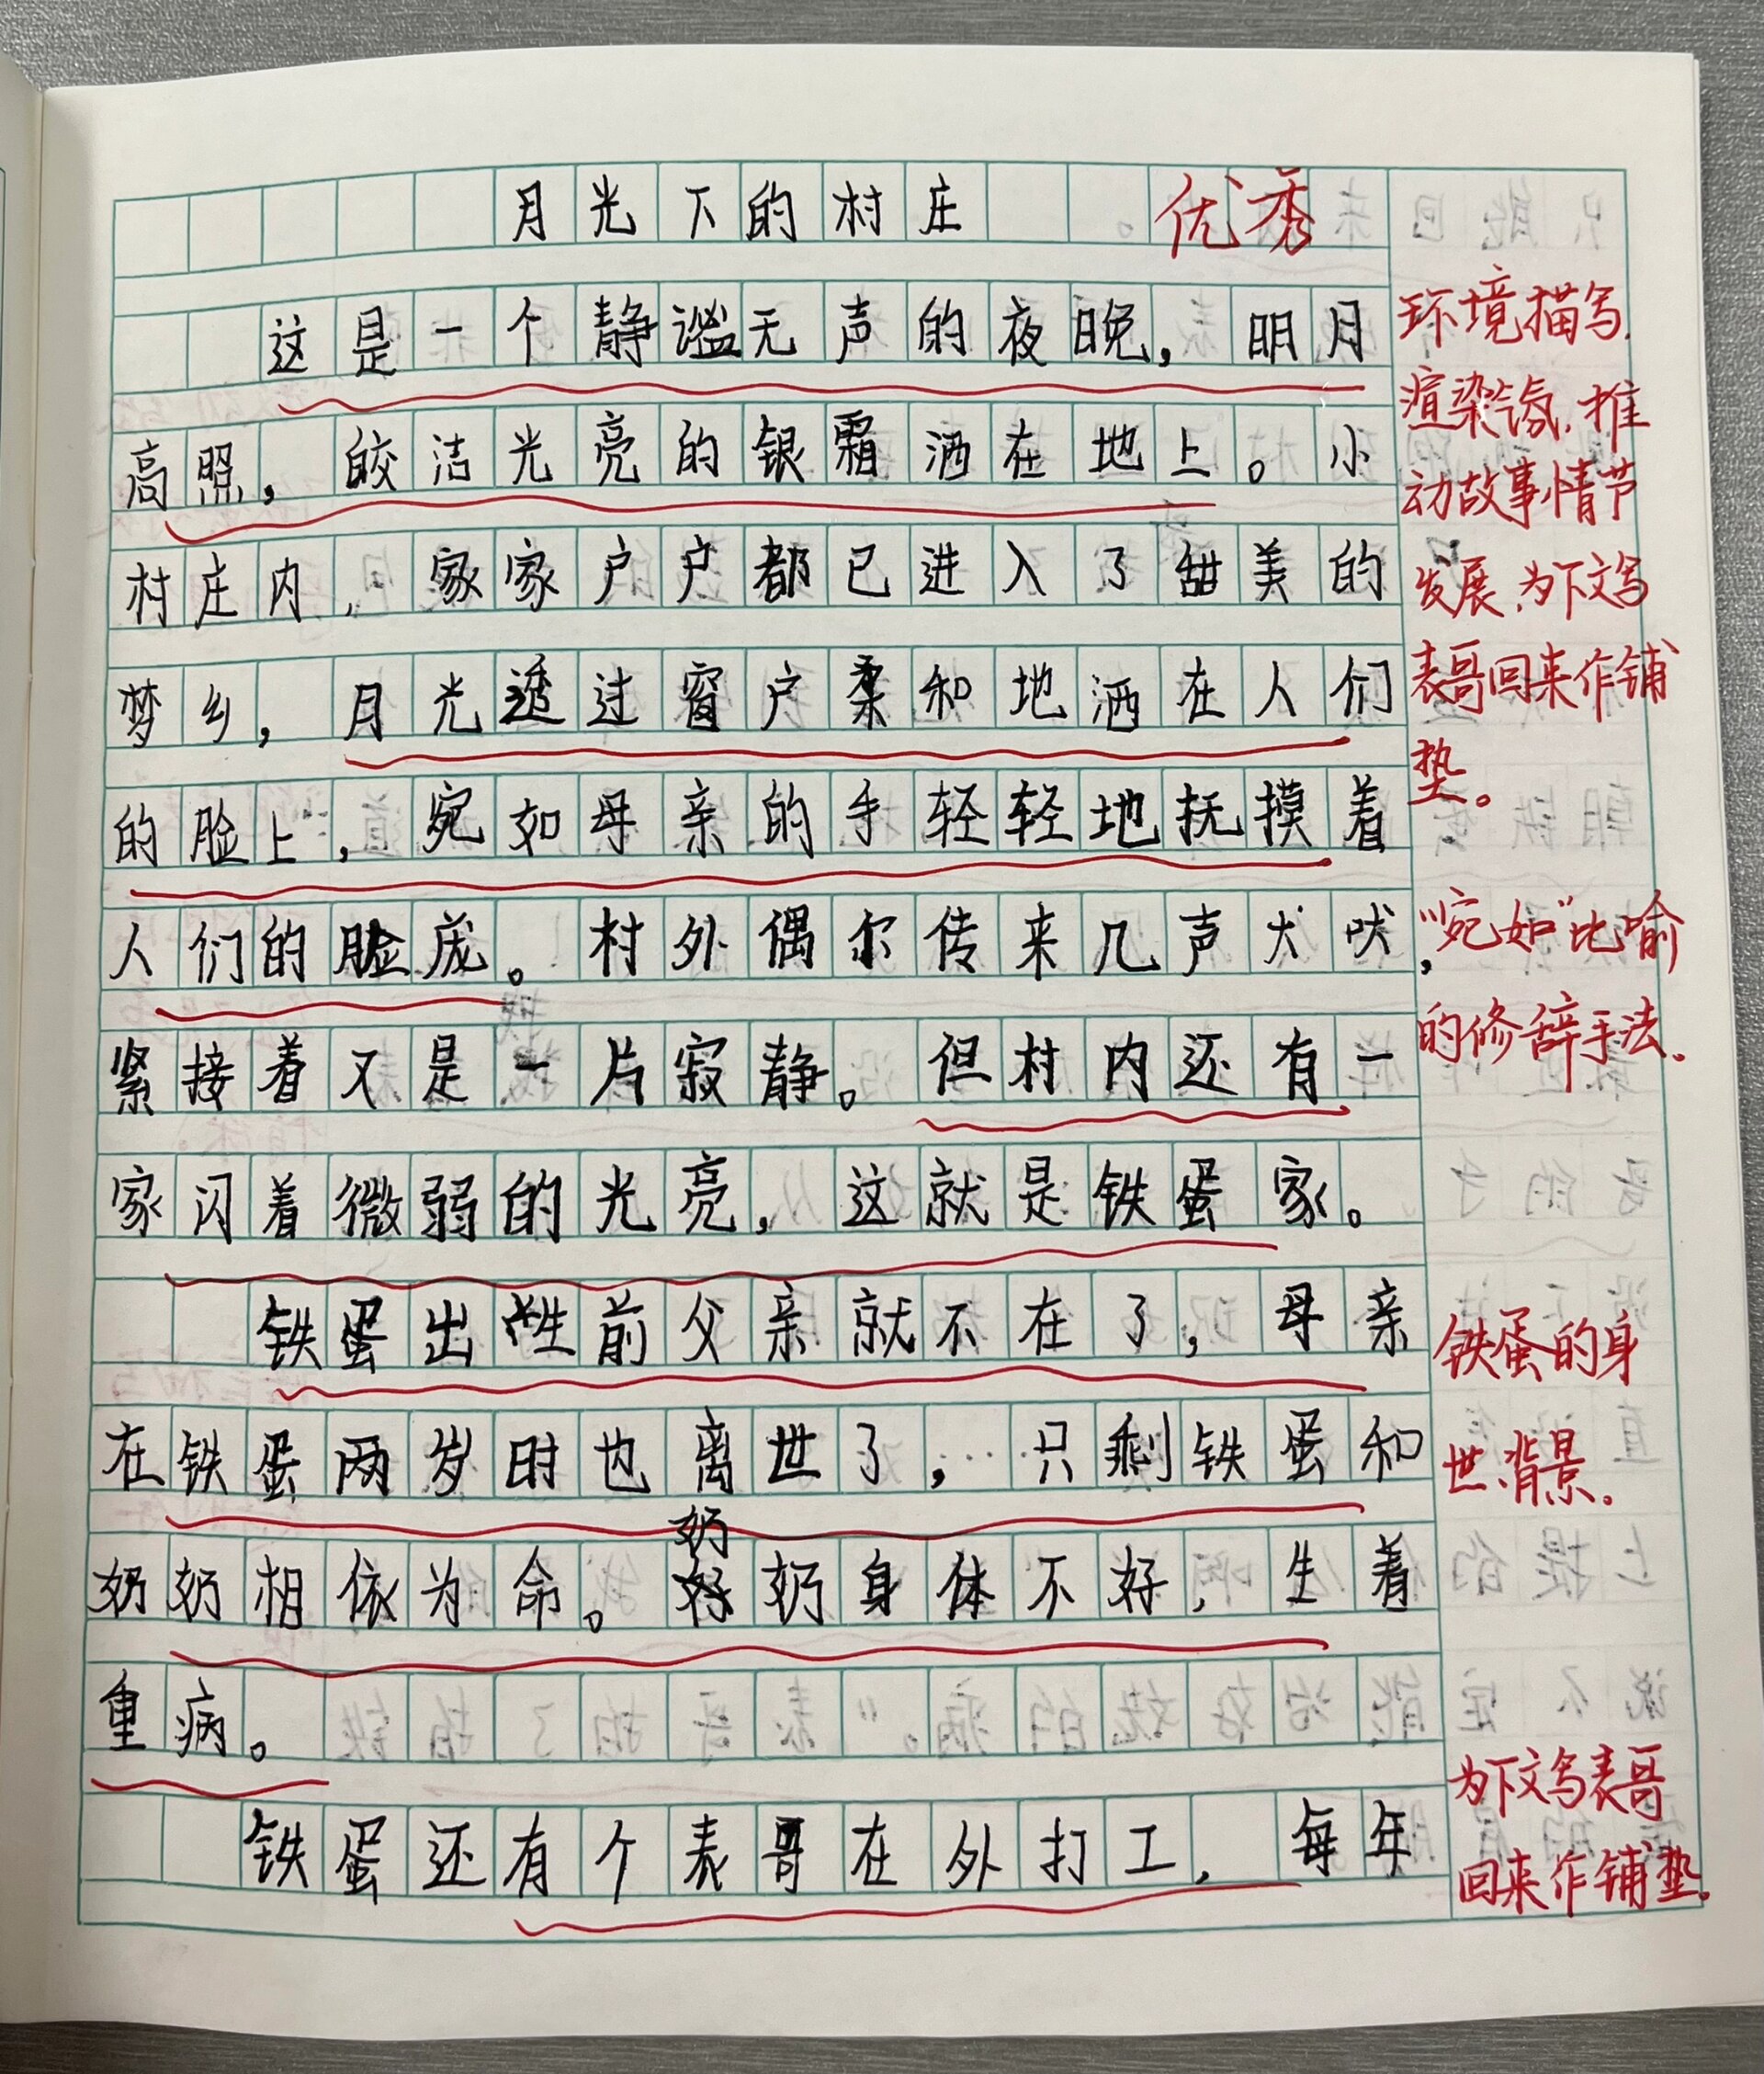 月光下的村庄
优秀
这是一个静谧无声的夜晚，明月
高照，皎洁光亮的银霜洒在地上。小
村庄内，家家户户都已进入了甜美的
梦乡，月光透过窗户柔和地洒在人们
的脸上，宛如母亲的手轻轻地抚摸着
人们的脸庞。村外偶尔传来几声犬吠，
紧接着又是一片寂静。但村内还有一
家闪着微弱的光亮，这就是铁蛋家。
铁蛋出生前父亲就不在了，母亲
在铁蛋两岁时也离世了，只剩铁蛋和
奶奶相依为命。奶奶身体不好，生着
重病。
铁蛋还有个表哥在外打工，每年
环境描写，
渲染气氛，推
动故事情节
发展，为下文写
表哥回来作铺
垫。
“宛如”比喻
的修辞手法。
铁蛋的身
世背景。
为下文写表哥
回来作铺垫。